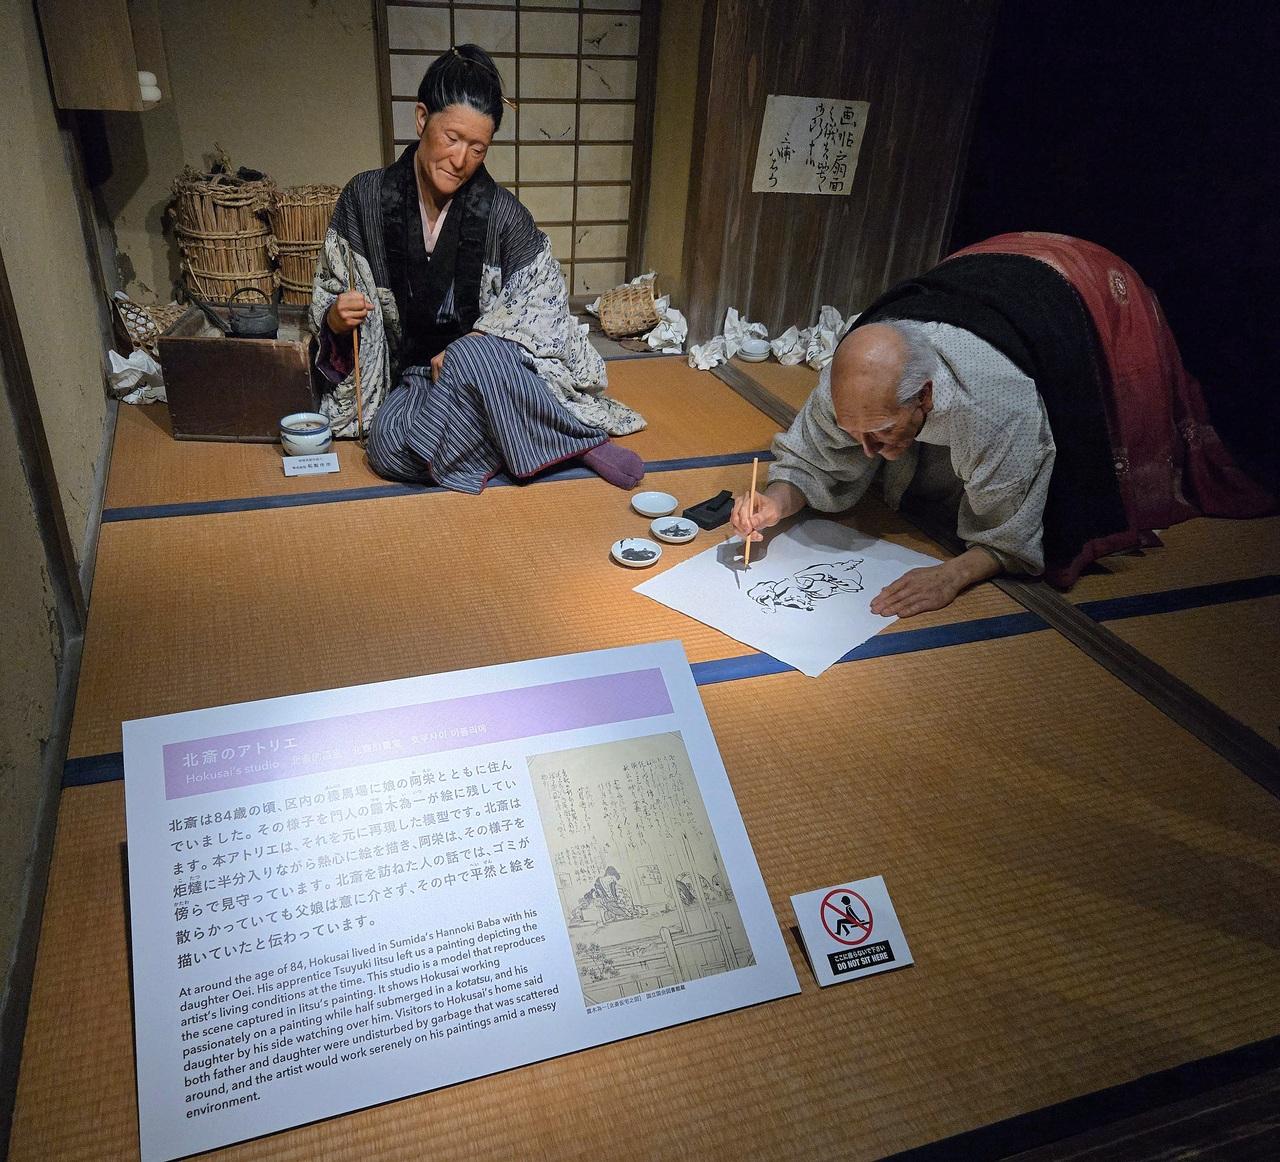 画帖扇面
三浦
北斎のアトリエ
Hokusai's studio
호쿠사이 아틀리에
北斎は84歳の頃、区内の榛馬場に娘の阿栄とともに住ん
でいました。その様子を門人の露木為一が絵に残してい
ます。本アトリエは、それを元に再現した模型です。北斎は
炬燵に半分入りながら熱心に絵を描き、阿栄は、その様子を
傍らで見守っています。北斎を訪ねた人の話では、ゴミが
散らかっていても父娘は意に介さず、その中で平然と絵を
描いていたと伝わっています。
At around the age of 84, Hokusai lived in Sumida's Hannoki Baba with his
daughter Oei. His apprentice Tsuyuki Iitsu left us a painting depicting the
artist's living conditions at the time. This studio is a model that reproduces
the scene captured in Iitsu's painting. It shows Hokusai working
passionately on a painting while half submerged in a kotatsu, and his
daughter by his side watching over him. Visitors to Hokusai's home said
both father and daughter were undisturbed by garbage that was scattered
around, and the artist would work serenely on his paintings amid a messy
environment.
露木為一「北斎仮宅之図」 国立国会図書館蔵
ここに座らないで下さい
DO NOT SIT HERE